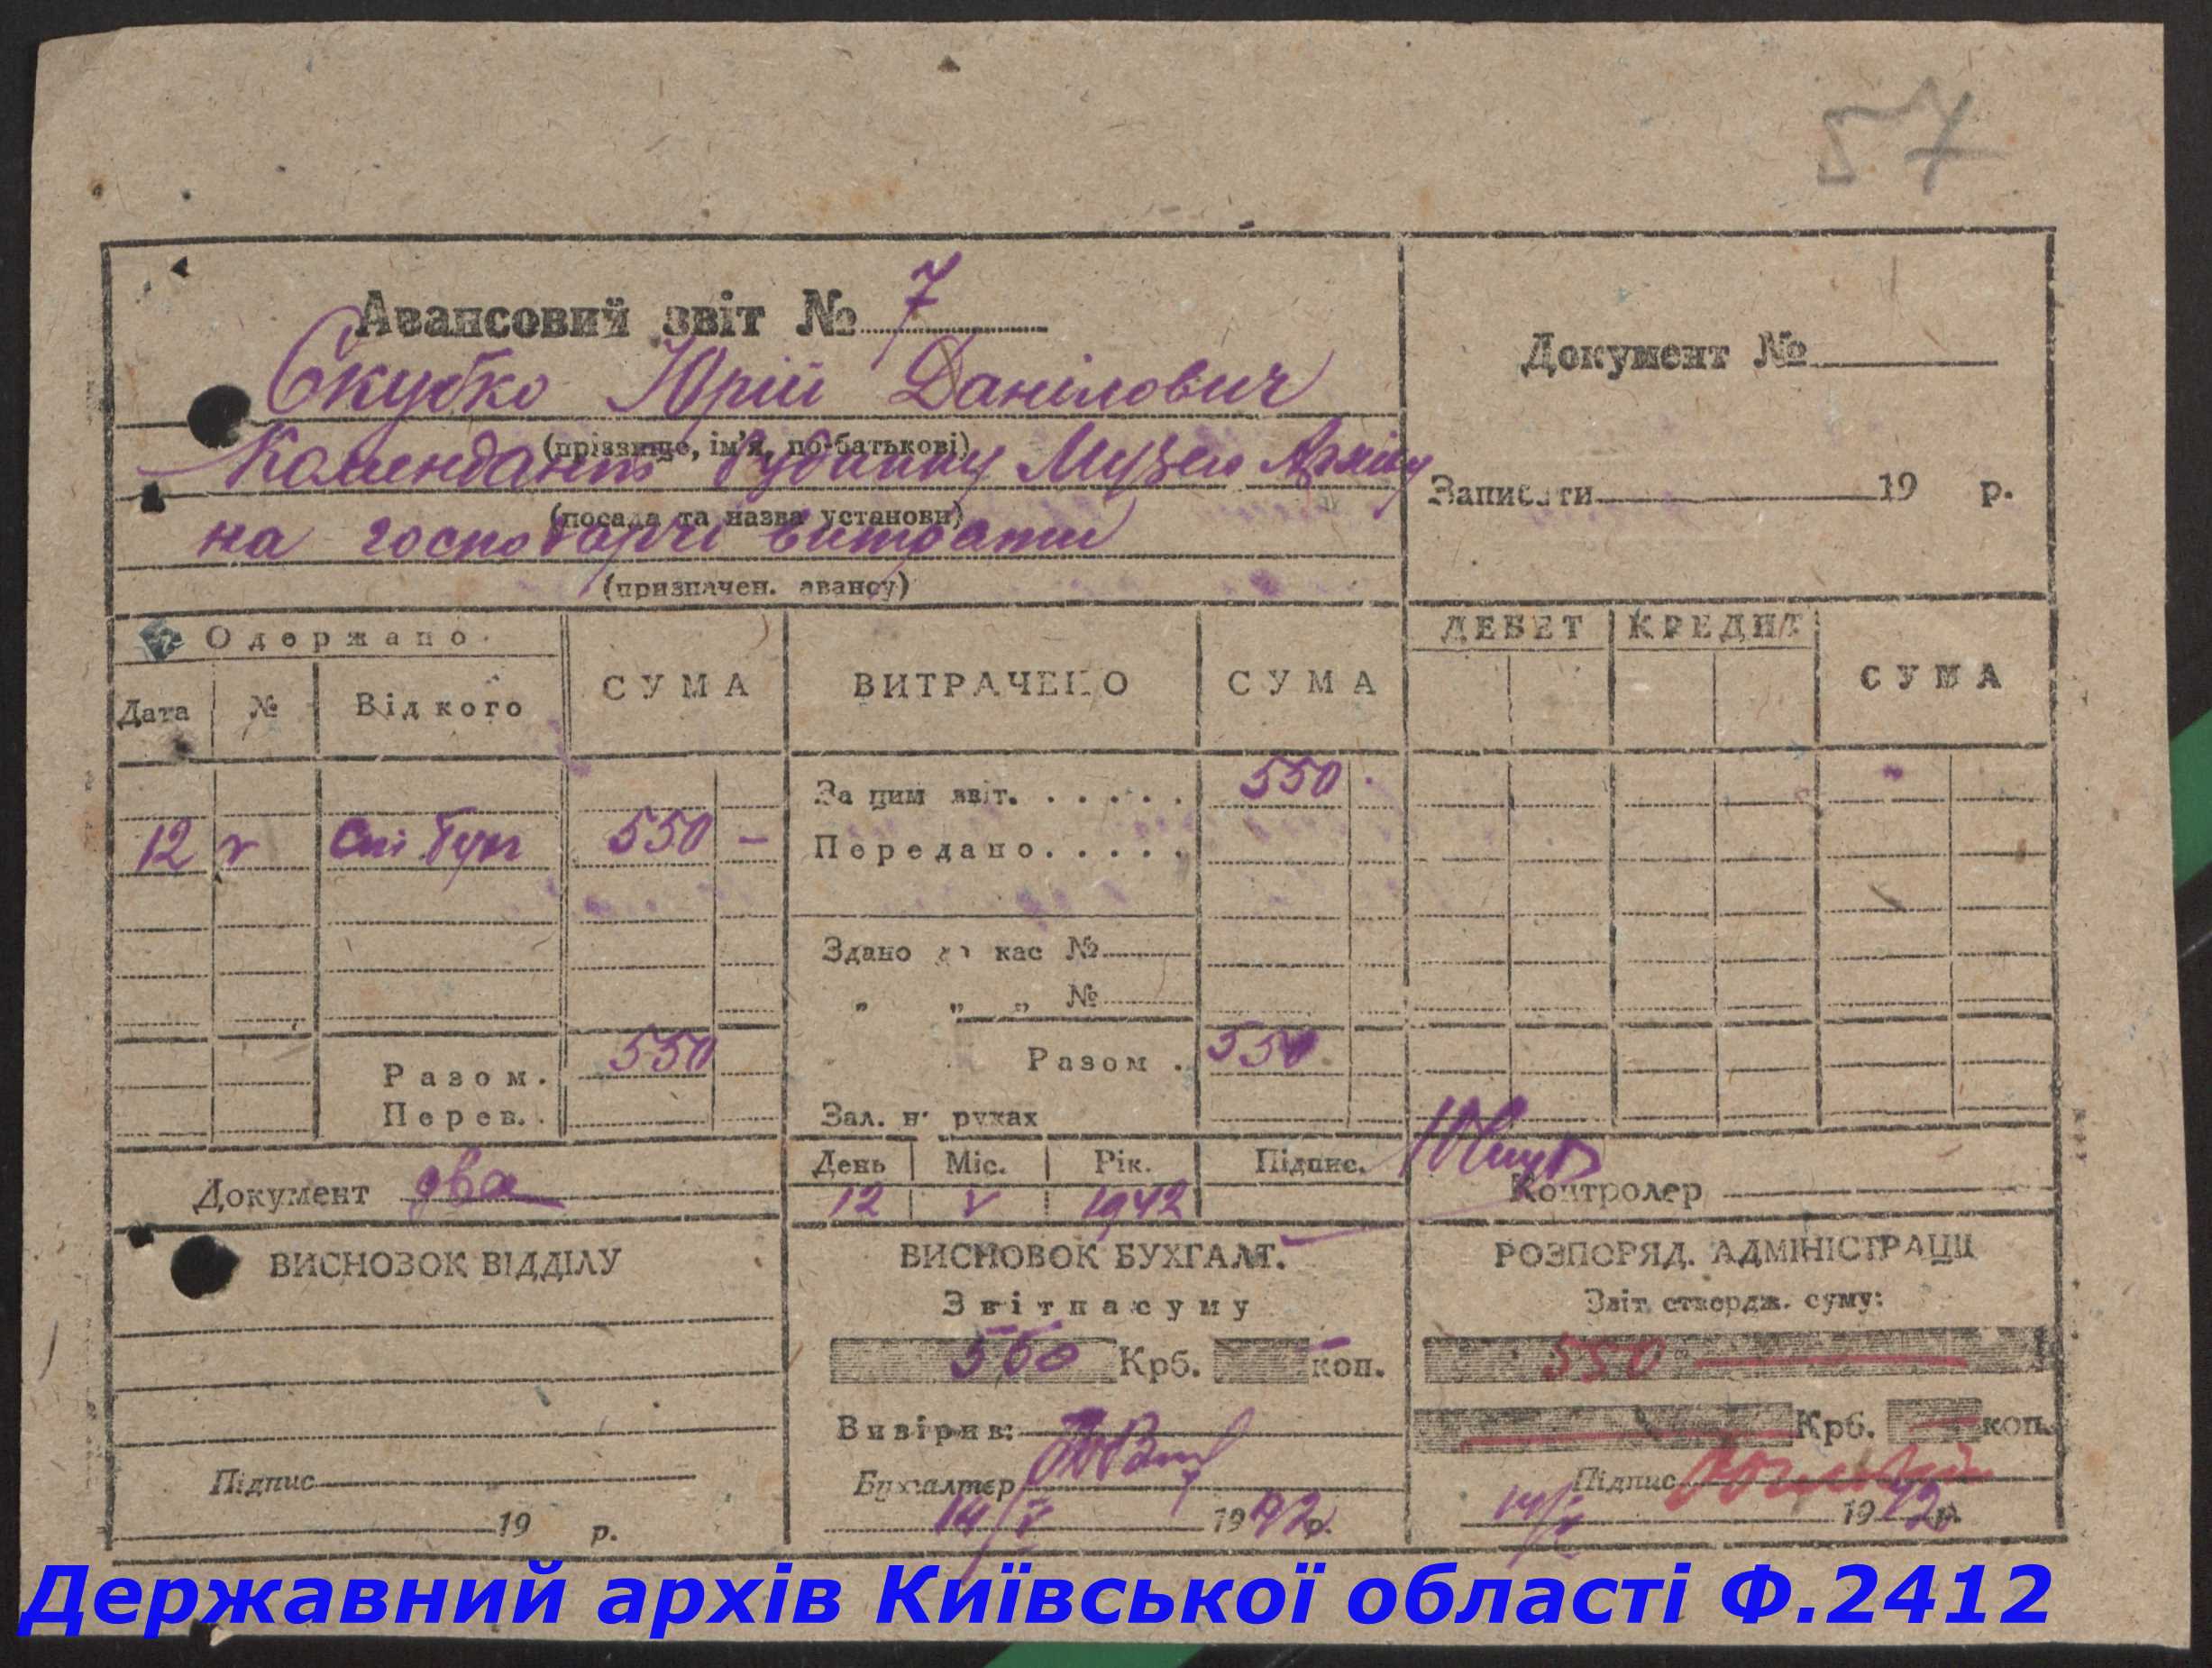 57
Авансовий звіт № 7
Скубко Юрій Данілович
(прізвище, ім'я, по-батькові)
Комендант Будинку Музею Архіву
(посада та назва установи)
на господарчі витрати
(призначен. авансу)
Документ №
Записати 19 р.
Одержано.
Дата № Від кого СУМА ВИТРАЧЕНО СУМА
ДЕБЕТ КРЕДИТ СУМА
За цим звіт. . . . . . 550
12 V 550 —
Передано. . . . .
Здано до кас №
„ „ „ №
Разом. 550
Разом . 550
Перев. .
Зал. н руках
Документ два
День Міс. Рік. Підпис.
12 V 1942
Контролер
ВИСНОВОК ВІДДІЛУ
Підпис
19 р.
ВИСНОВОК БУХГАЛТ.
Звіт на суму
550 Крб. — коп.
Вивірив:
Бухгалтер
14/V 1942 р.
РОЗПОРЯД. АДМІНІСТРАЦІЇ
Звіт. ствердж. суму:
550 —
Крб. — коп.
Підпис
14/V 1942 р.
Державний архів Київської області Ф.2412